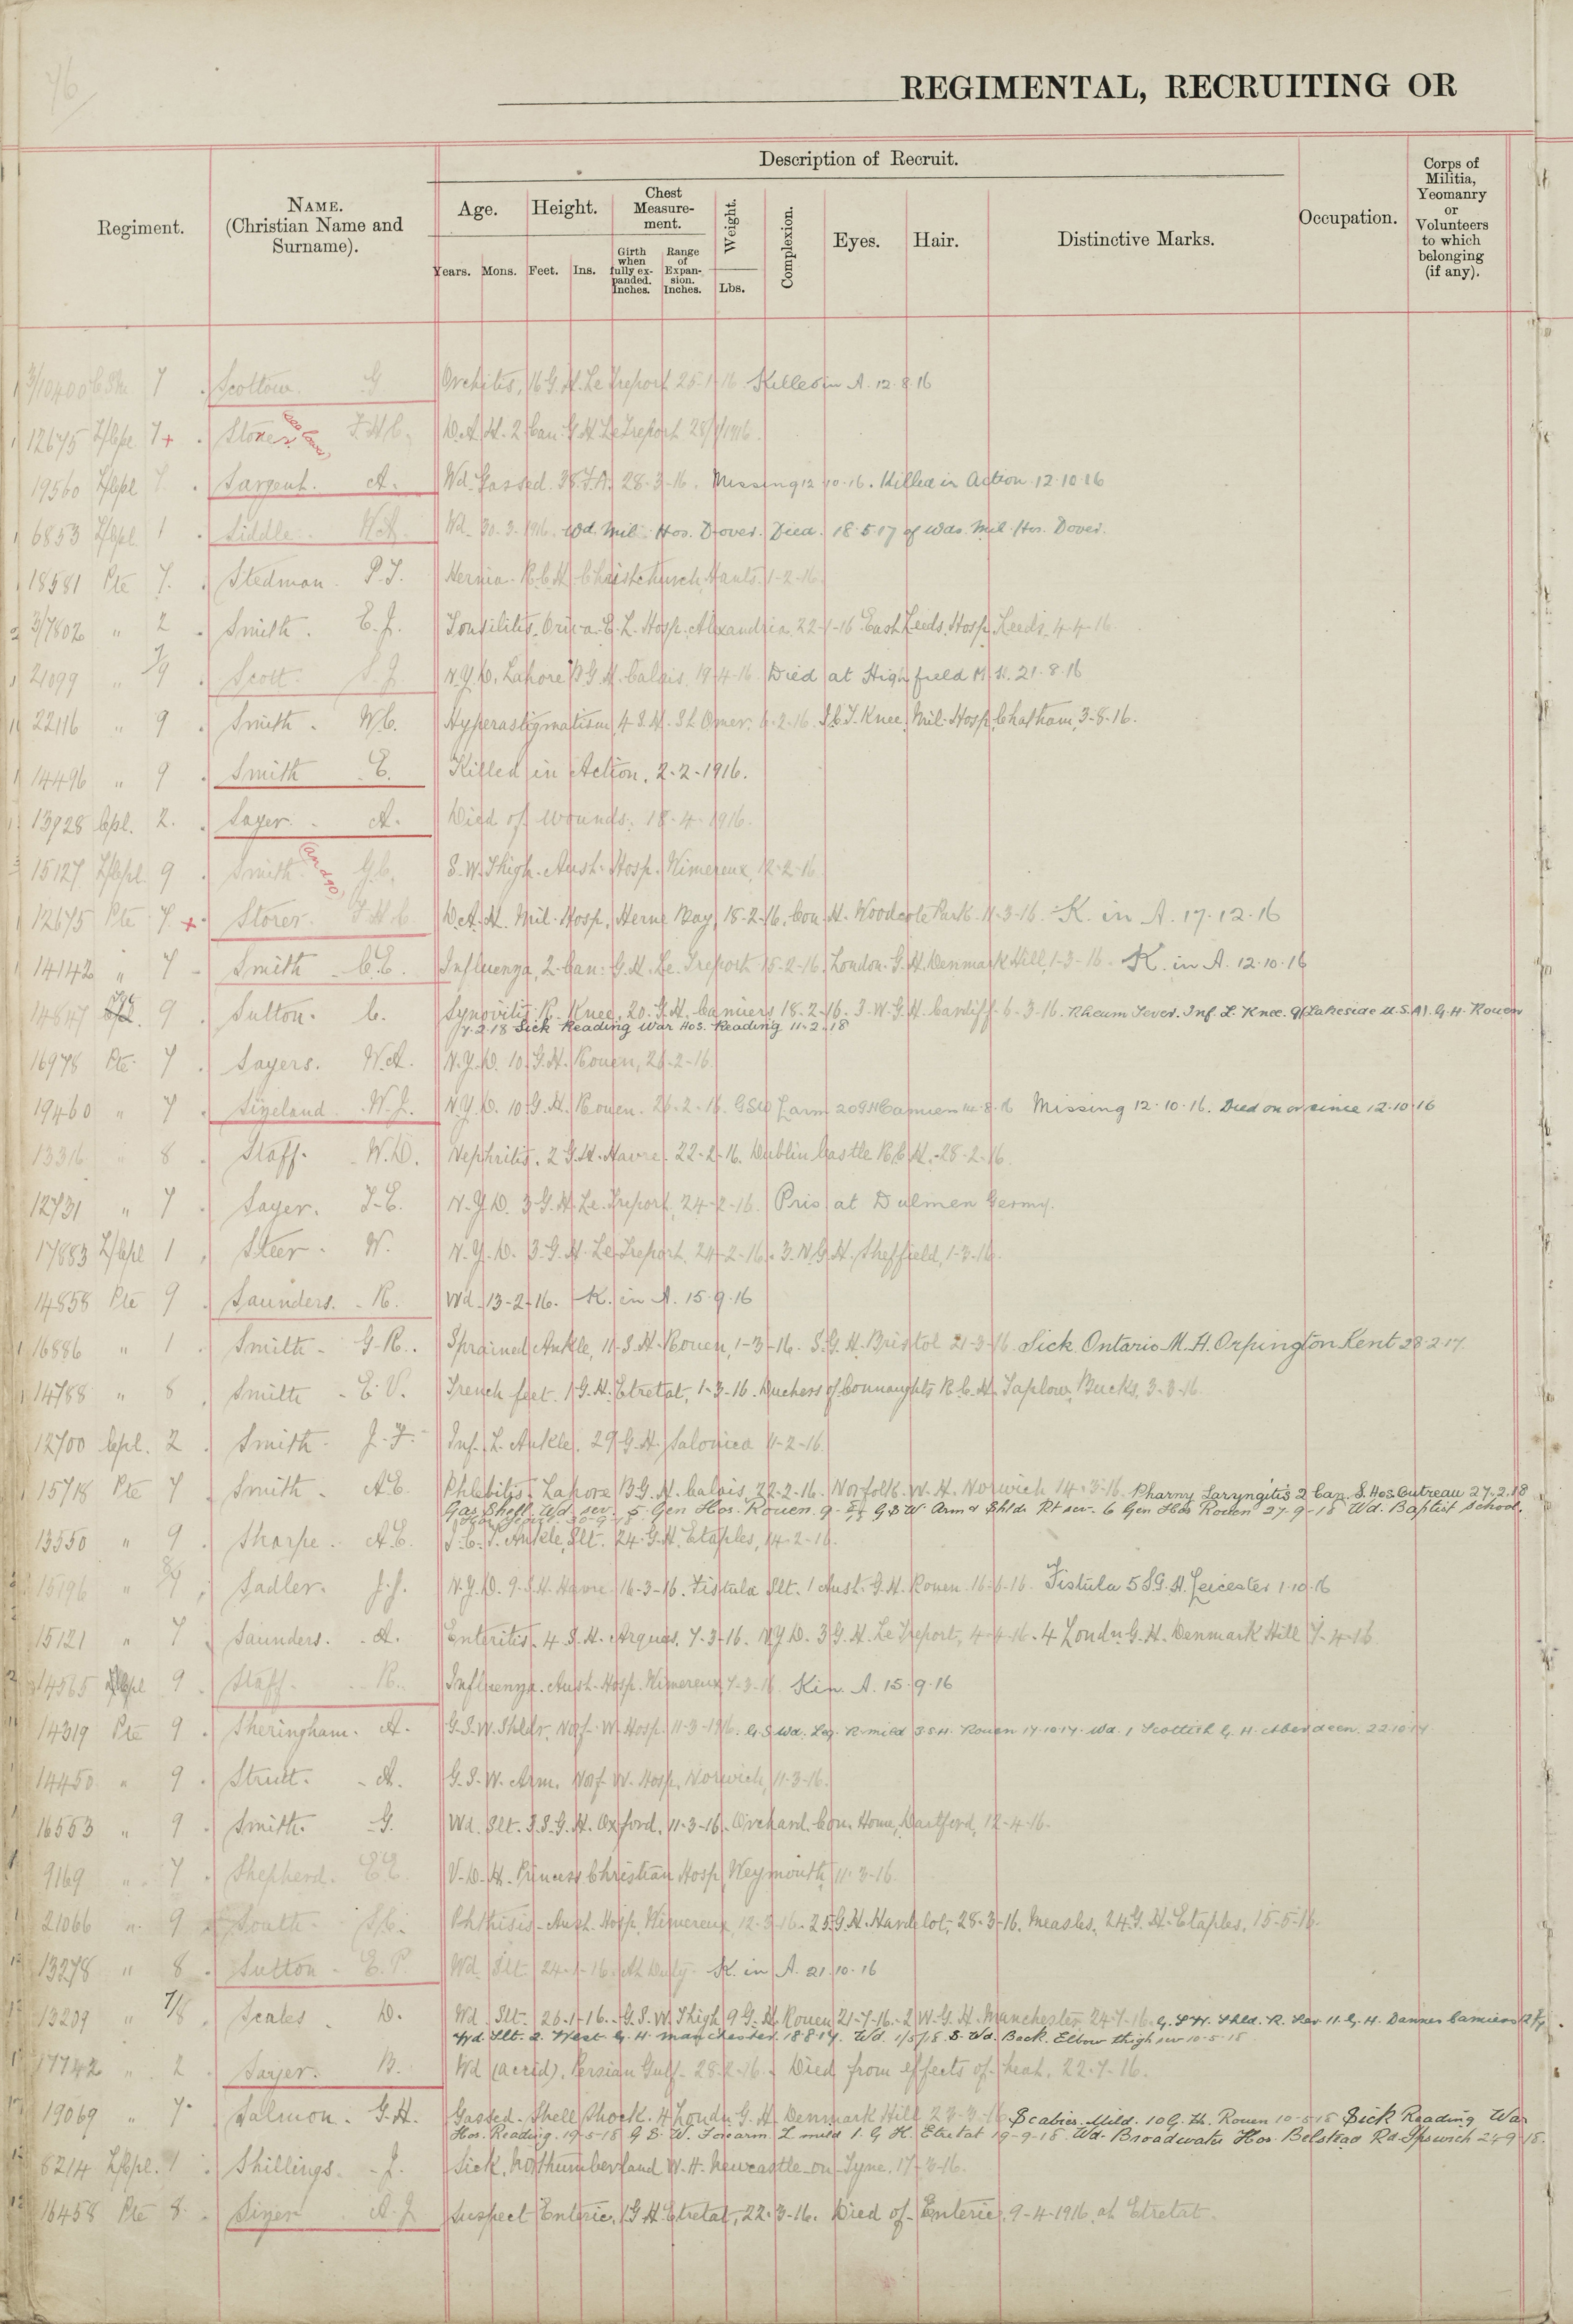 76
REGIMENTAL, RECRUITING OR
Regiment.
NAME.
(Christian Name and
Surname).
Description of Recruit.
Age.
Height.
Chest
Measure-
ment.
Weight.
Complexion.
Eyes.
Hair.
Distinctive Marks.
Occupation.
Corps of
Militia,
Yeomanry
or
Volunteers
to which
belonging
(if any).
Years.
Mons.
Feet.
Ins.
Girth
when
fully ex-
panded.
Inches.
Range
of
Expan-
sion.
Inches.
Lbs.
3/10400 7 Scottow. G Orchitis, 16 G.H. Le Treport 25-1-16 Killed in A. 12.8.16
12675 L/Cpl 7 + Storer F.H.C. D.A.H. 2 Can. G.H. Le Treport 28/1/1916.
19560 L/Cpl 7. Sargent. A. Wd. Gassed. 38.F.A. 28-3-16. Missing 12.10.16. Killed in Action 12.10.16
6853 L/Cpl 1 Siddle. W.A. Wd. 30.3.1916. Wd. Mil. Hos. Dover. Died. 18.5.17 of Wds. Mil. Hos. Dover.
18581 Pte 7. Stedman. P.J. Hernia. R.C.H. Christchurch, Hants. 1-2-16.
3/7802 " 2 Smith. E.J. Tonsilitis. Alexandria. 22-1-16 East Leeds. Hosp. Leeds. 4-4-16.
21099 " 7/9 Scott. S.J. N.Y.D. Lahore B.G.H. Calais. 19-4-16 Died at Highfield M.H. 21.8.16
22116 " 9 Smith. W.C. Hyperastigmatism, 4 S.H. St Omer. 6-2-16. I.C.T. Knee, Mil. Hosp. Chatham, 3-8-16.
14496 " 9 Smith E. Killed in Action. 2-2-1916.
13928 Cpl. 2. Sayer. A. Died of Wounds. 18-4-1916.
15127 L/Cpl. 9 Smith. G.C. S.W. Thigh. Aust. Hosp. Wimereux, 12-2-16
12675 Pte 7. + Storer. F.H.C. D.A.H. Mil. Hosp, Herne Bay, 15-2-16. Con. H. Woodcote Park. 11-3-16. K. in A. 17.12.16
14142 " 7 Smith C.E. Influenza, 2. Can: G.H. Le Treport 15-2-16. London. G.H. Denmark Hill, 1-3-16. K. in A. 12.10.16
14847 9 Sutton. C. Synovitis R. Knee, 20. G.H. Camiers 18-2-16. 3. W.G.H. Cardiff. 6-3-16. Rheum Fever. Inf. L. Knee. 9 (Lakeside U.S.A). G.H. Rouen
7.2.18 Sick Reading War Hos. Reading 11-2-18
16978 Pte 7 Sayers. W.A. N.Y.D. 10. G.H. Rouen, 26-2-16.
19460 " 7 Sizeland W.J. N.Y.D. 10 G.H. Rouen. 26-2-16. GSW L arm 20 GH Camiers 14.8.16 Missing 12.10.16. Died on or since 12.10.16
13316 " 8 Staff. W.D. Nephritis. 2 G.H. Havre. 22-2-16. Dublin Castle R.C.H. -28-2-16.
12731 " 7 Sayer. J.E. N.Y.D. 3 G.H. Le Treport, 24-2-16. Pris at Dulmen Germy.
17883 L/Cpl 1 Steer. W. N.Y.D. 3.G.H. Le Treport, 24-2-16. 3. N.G.H. Sheffield, 1-3-16.
14858 Pte 9 Saunders. R. Wd. 13-2-16. K. in A. 15.9.16
16886 " 1 Smith. G.R. Sprained Ankle, 11. S.H. Rouen, 1-3-16. S.G.H. Bristol 21-3-16. Sick. Ontario. M.H. Orpington Kent 28.2.17.
14788 " 8 Smith. E.V. Trench feet. 1 G.H. Etretat, 1-3-16. Duchess of Connaughts R.C.H. Taplow, Bucks, 3-3-16.
12700 Cpl. 2 Smith. J.F. Inf. L. Ankle. 29 G.H. Salonica 11-2-16.
15718 Pte 7 Smith. A.E. Phlebitis. Lahore B.G.H. Calais, 22-2-16. Norfolk W.H. Norwich 14-3-16. Pharny Laryngitis 2 Can. S. Hos. Outreau 27.2.18
Gas Shell Wd. sev. 5 Gen Hos. Rouen. G.S.W. Arm & Shldr Rt sev. 6 Gen Hos Rouen 27-9-18 Wd. Baptist School.
13550 " 9 Sharpe. A.E. I.C.T. Ankle, Slt. 24. G.H. Etaples, 14-2-16.
15196 " Sadler. J.J. N.Y.D. 9. S.H. Havre. 16-3-16. Fistula Slt. 1 Aust. G.H. Rouen. 16-6-16. Fistula 5 S.G.H. Leicester 1.10.16
15121 " 7 Saunders. A. Enteritis. 4 S.H. Arques. 7-3-16. N.Y.D. 3 G.H. Le Treport, 4-4-16. 4 Londn. G.H. Denmark Hill 7-4-16
14565 L/Cpl 9 Staff. R. Influenza. Aust. Hosp. Wimereux, 7-3-16 K. in A. 15.9.16
14319 Pte 9 Sheringham. A. G.S.W. Shldr. Norf. W. Hosp. 11-3-1916. G.S. Wd. Leg. R. mild 3 S.H. Rouen 17.10.17. Wd. 1 Scottish G.H. Aberdeen. 22.10.17
14450 " 9 Strutt. A. G.S.W. Arm. Norf. W. Hosp, Norwich, 11-3-16.
16553 " 9 Smith. G. Wd. Slt. 3. S.G.H. Oxford. 11-3-16. Orchard. Con. Home, Dartford, 12-4-16.
9169 " 7 Shepherd. E.E. V.D.H. Princess Christian Hosp, Weymouth, 11-3-16.
21066 " 9 South. S.C. Phthisis. Aust. Hosp. Wimereux, 12-3-16. 25 G.H. Hardelot, 28-3-16. Measles, 24. G.H. Etaples, 15-5-16.
13278 " 8 Sutton. E.P. Wd. Slt. 24-1-16. At Duty. K. in A. 21.10.16
13209 " 7/8 Scales. D. Wd. Slt. 26-1-16. G.S.W. Thigh 9 G.H. Rouen 21-7-16. 2 W.G.H. Manchester, 24-7-16. Shld. R. sev. 11. G.H. Dannes Camiers
Wd. Slt. 2. West. G.H. Manchester. 18.8.17. Wd. 1/5/18. S. Wd. Back. Elbow thigh sev 10-5-18
17742 " 2 Sayer. B. Wd (accid). Persian Gulf. 28-2-16. Died from effects of heat. 22-7-16.
19069 " 7 Salmon. G.H. Gassed. Shell Shock. 4 Londn G.H. Denmark Hill 23-3-16 Scabies. Mild. 10 G.H. Rouen 10-5-18 Sick Reading War
Hos. Reading. 19-5-18 G.S.W. Forearm L mild 1. G.H. Etretat 19-9-18. Wd. Broadwater Hos. Belstead Rd. Ipswich 24 9 18.
8214 L/Cpl. 1 Shillings. J. Sick. Northumberland W.H. Newcastle-on-Tyne. 17-3-16.
16458 Pte 8. Sizer A.J. Suspect Enteric, 1 G.H. Etretat, 22-3-16. Died of Enteric, 9-4-1916, at Etretat.